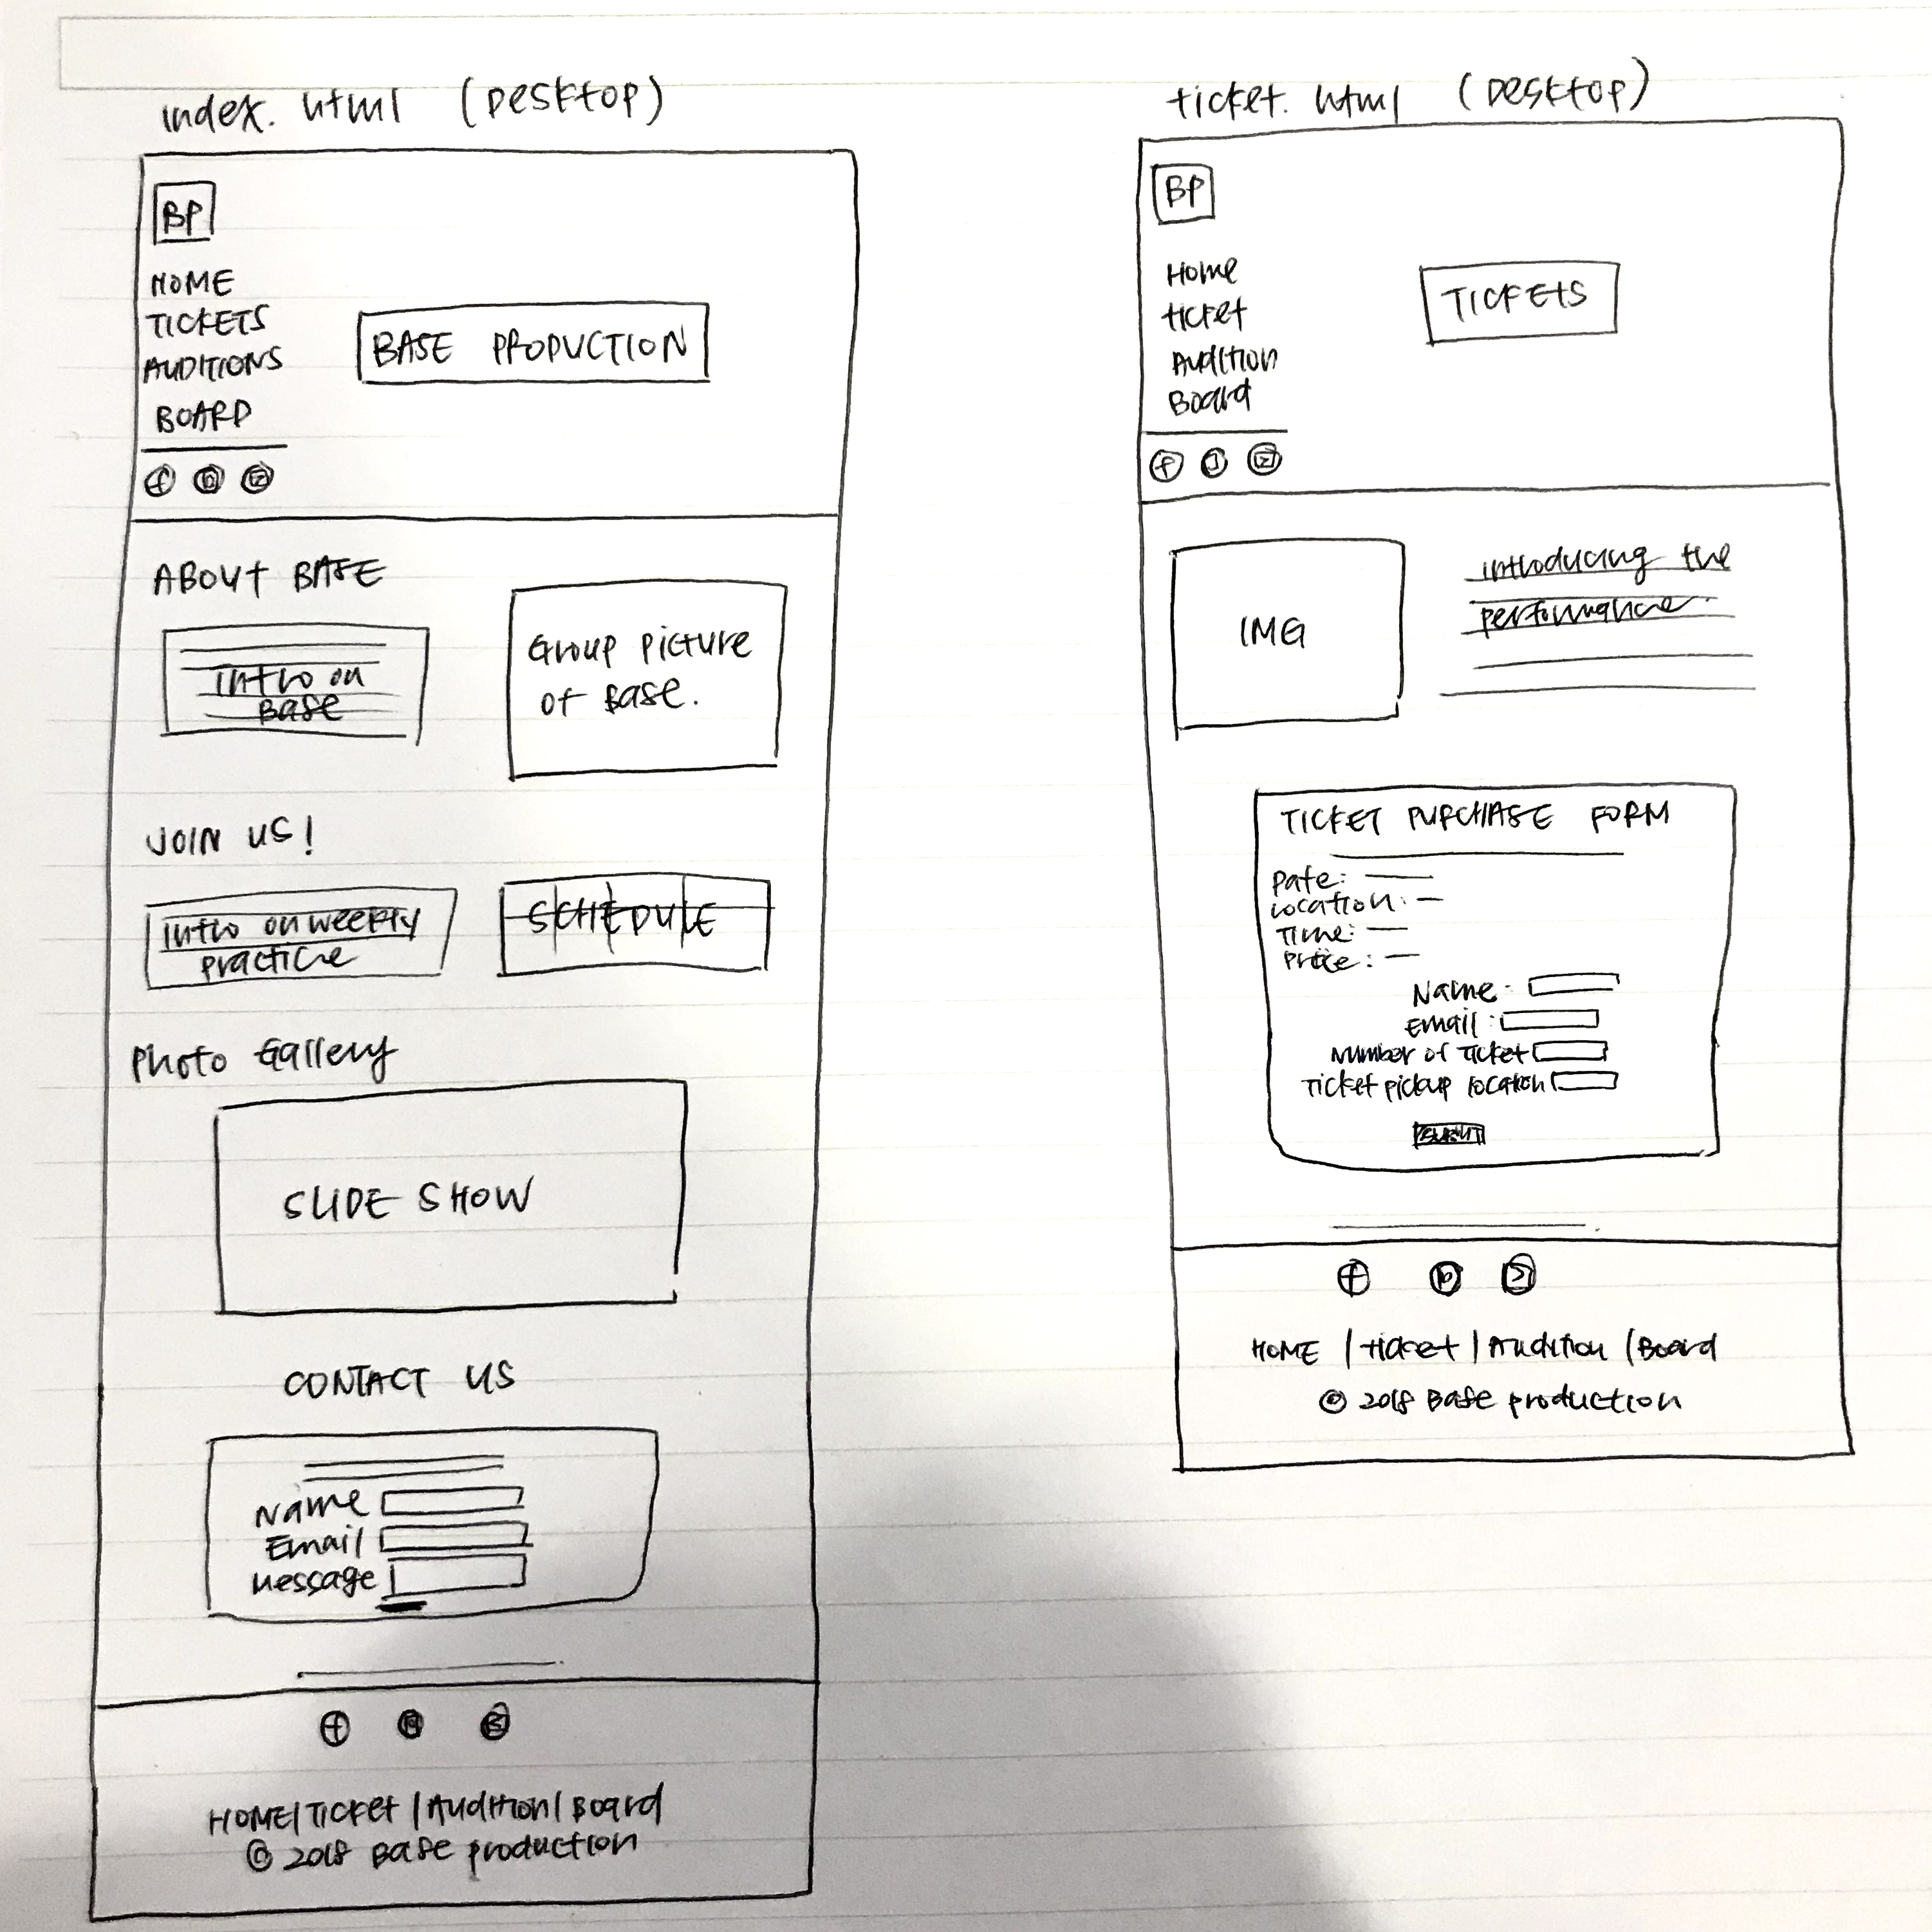 index.html (Desktop)
BP
HOME
TICKETS
AUDITIONS
BOARD
BASE PRODUCTION
ABOUT BASE
Intro on
Base
Group picture
of Base.
JOIN US!
Intro on weekly
practice
SCHEDULE
Photo Gallery
SLIDE SHOW
CONTACT US
Name
Email
Message
HOME/Ticket/Audition/Board
© 2018 Base production
ticket.html (Desktop)
BP
Home
ticket
Audition
Board
TICKETS
IMG
introducing the
performance.
TICKET PURCHASE FORM
Date:
Location:
Time:
Price:
Name:
Email:
Number of Ticket
Ticket pickup location
SUBMIT
HOME | ticket | Audition | Board
© 2018 Base production